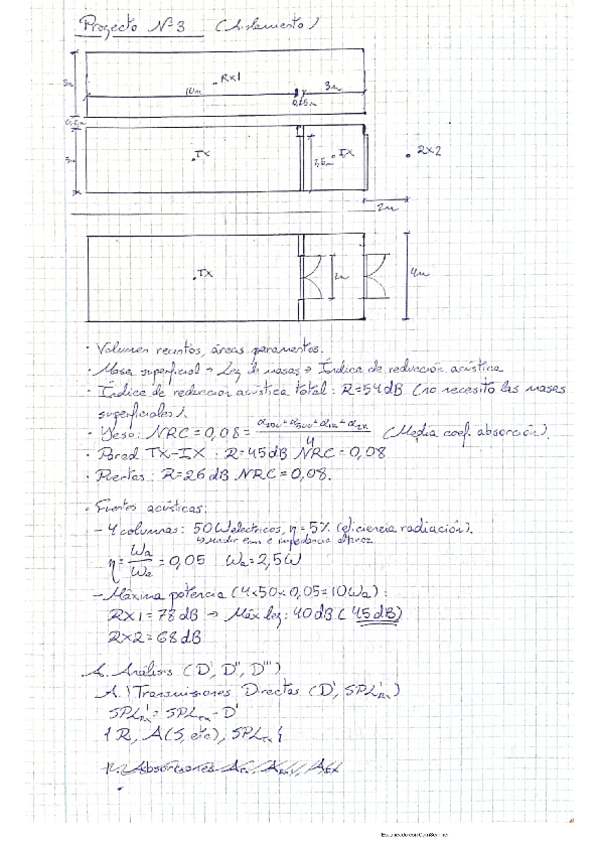 Proyecto Nº3 (Aislamiento)
3m
.RX1
10m
0,15m
3m
3m
.TX
2,5m
.IX
.RX2
2m
.TX
2m
4m
· Volumen recintos, áreas paramentos.
· Masa superficial → Ley de masas → Índice de reducción acústica
· Índice de reducción acústica total: R=54dB (no necesito las masas
superficiales).
· Yeso: NRC=0,08= α250+α500+α1K+α2K / 4 (Media coef. absorción).
· Pared TX-IX: R=45dB NRC=0,08
· Puertas: R=26 dB NRC=0,08.
· Fuentes acústicas:
- 4 columnas: 50W eléctricos, η=5% (eficiencia radiación).
η= Wa/We =0,05 Wa=2,5W
- Máxima potencia (4x50x0,05=10Wa):
RX1=78dB → Máx ley: 40dB (45dB)
RX2=68dB
A. Análisis (D', D'', D''')
A.1 Transmisiones Directas (D', SPL'Rx)
SPL'Rx = SPLTx - D'
{R, A(S, etc), SPLTx}
Escaneado con CamScanner